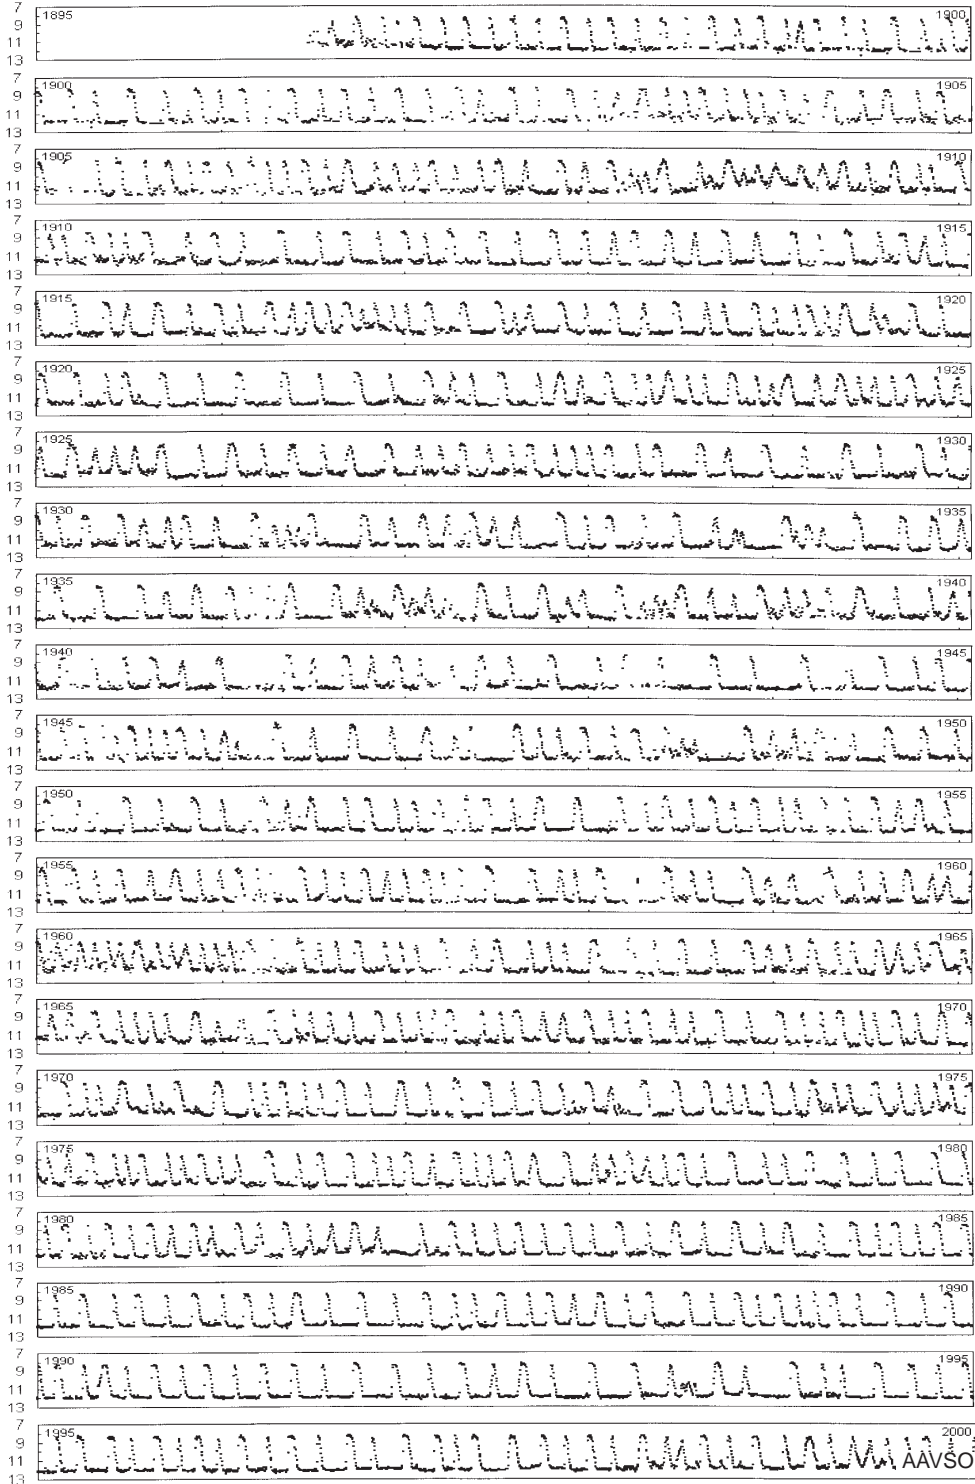 7
9
11
13
1895 1900
7
9
11
13
1900 1905
7
9
11
13
1905 1910
7
9
11
13
1910 1915
7
9
11
13
1915 1920
7
9
11
13
1920 1925
7
9
11
13
1925 1930
7
9
11
13
1930 1935
7
9
11
13
1935 1940
7
9
11
13
1940 1945
7
9
11
13
1945 1950
7
9
11
13
1950 1955
7
9
11
13
1955 1960
7
9
11
13
1960 1965
7
9
11
13
1965 1970
7
9
11
13
1970 1975
7
9
11
13
1975 1980
7
9
11
13
1980 1985
7
9
11
13
1985 1990
7
9
11
13
1990 1995
7
9
11
13
1995 2000
AAVSO